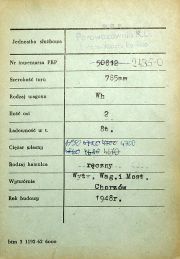 P.K.P.
Jednostka służbowa Parowozownia
Nr inwentarza PKP 50812 2435-0
Szerokość toru 785mm
Rodzaj wagonu Wh
Ilość osi 2
Ładowność w t. 8t.
Ciężar własny 4700 4700
Rodzaj hamulca ręczny
Wytwórnia Wytw. Wag. i Most.
Chorzów
Rok budowy 1948r.